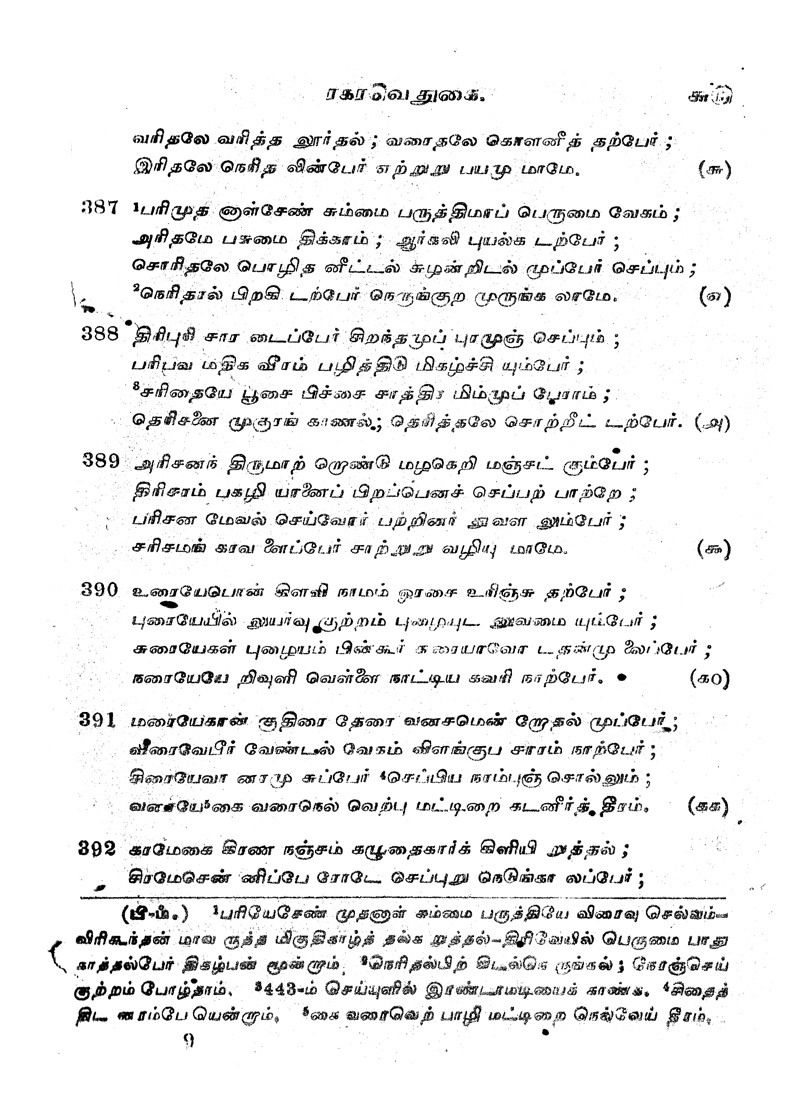 ரகரவெதுகை. ௬௫
வரிதலே வரித்த லூர்தல் ; வரைதலே கொளனீத் தற்பேர் ;
இரிதலே நெரித லின்பேர் எற்றுறு பயமு மாமே. (௬)
387 ¹பரிமுத னாள்சேண் சும்மை பருத்திமாப் பெருமை வேகம் ;
அரிதமே பசுமை திக்காம் ; ஆர்கலி புயல்க டற்பேர் ;
சொரிதலே பொழித னீட்டல் சுழன்றிடல் முப்பேர் செப்பும் ;
²நெரிதரல் பிறகி டற்பேர் நெருங்குற முருங்க லாமே. (௭)
388 திரிபுரி சார டைப்பேர் சிறந்தமுப் புரமுஞ் செப்பும் ;
பரிபவ மதிக வீரம் பழித்திடு மிகழ்ச்சி யும்பேர் ;
³சரிதையே பூசை பிச்சை சாத்திர மிம்முப் பேராம் ;
தெரிசனை முகுரங் காணல் ; தெரித்தலே சொற்றீட் டற்பேர். (௮)
389 அரிசனந் திருமாற் றொண்டு மழகெறி மஞ்சட் கும்பேர் ;
திரிசரம் பகழி யானைப் பிறப்பெனச் செப்பற் பாற்றே ;
பரிசன மேவல் செய்வோர் பற்றினர் துவள லும்பேர் ;
சரிசமங் காவ ளைப்பேர் சாற்றுறு வழியு மாமே. (௯)
390 உரையேபொன் கிளவி நாமம் ஓரசை உரிஞ்சு தற்பேர் ;
புரையேயில் லுயர்வு குற்றம் புழையுட லுவமை யும்பேர் ;
சுரையேகள் புழையம் பின்கூர் சுரையாவோ டதன்மு லைப்பேர் ;
நரையேயே றிவுளி வெள்ளை நாட்டிய கவரி நாற்பேர். (௧௦)
391 மரையேகான் குதிரை தேரை வனசமென் றோதல் முப்பேர் ;
விரைவேபீர் வேண்டல் வேகம் விளங்குப சாரம் நாற்பேர் ;
சிரையேவா னரமு சுப்பேர் ⁴செப்பிய நரம்புஞ் சொல்லும் ;
வரையே⁵கை வரைநெல் வெற்பு மட்டிறை கடனீர்த் தீரம். (௧௧)
392 கரமேகை கிரண நஞ்சம் கழுதைகார்க் கிளியி றுத்தல் ;
சிரமேசென் னிப்பே ரோடே செப்புறு நெடுங்கா லப்பேர் ;
(பி-ம்.) ¹பரியேசேண் முதனாள் சும்மை பருத்தியே விரைவு செல்வம்–
விரிகூர்தன் மாவ ருத்த மிகுதிகாழ்த் தல்க றுத்தல்–திரிவேயில் பெருமை பாது
காத்தல்பேர் திகழ்பன் மூன்றும். ²நெரிதல்பிற் கிடல்நெ ருங்கல் ; நேரஞ்செய்
குற்றம் போழ்தாம். ³443-ம் செய்யுளில் இரண்டாமடியைக் காண்க. ⁴சிதைத்
திட னரம்பே யென்றும். ⁵கை வரைவெற் பாழி மட்டிறை நெல்வேய் தீரம்.
9